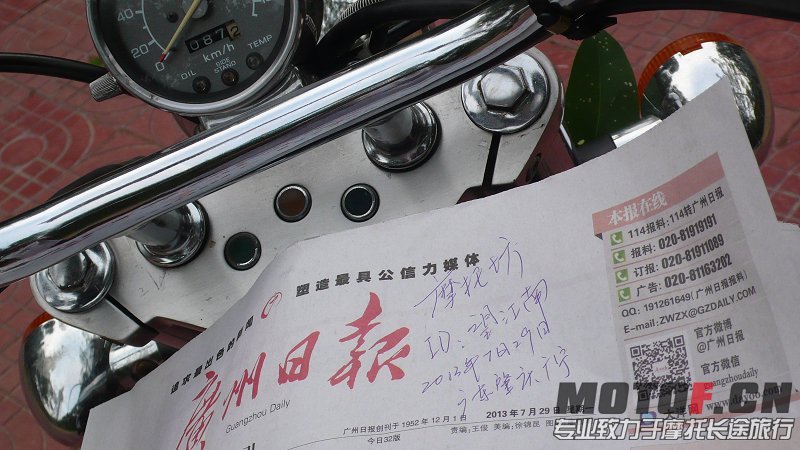 20
0
0872
km/h
OIL
SIDE STAND
TEMP
追求最出色的新闻
塑造最具公信力媒体
廣州日報
Guangzhou Daily
摩托坊
ID:望江南
2013年7月29日
肇庆广宁
广州日报创刊于1952年12月1
2013年7月29日
今日32版
责编:王俊 美编:徐锦昆
本报在线
114报料:114转广州日报
报料:020-81919191
订报:020-81911089
广告:020-81163282
QQ:191261649(广州日报报料)
E-mail:ZWZX@GZDAILY.COM
官方微博
@广州日报
官方微信
guangzhoudaily
MOTOF.CN
专业致力于摩托长途旅行